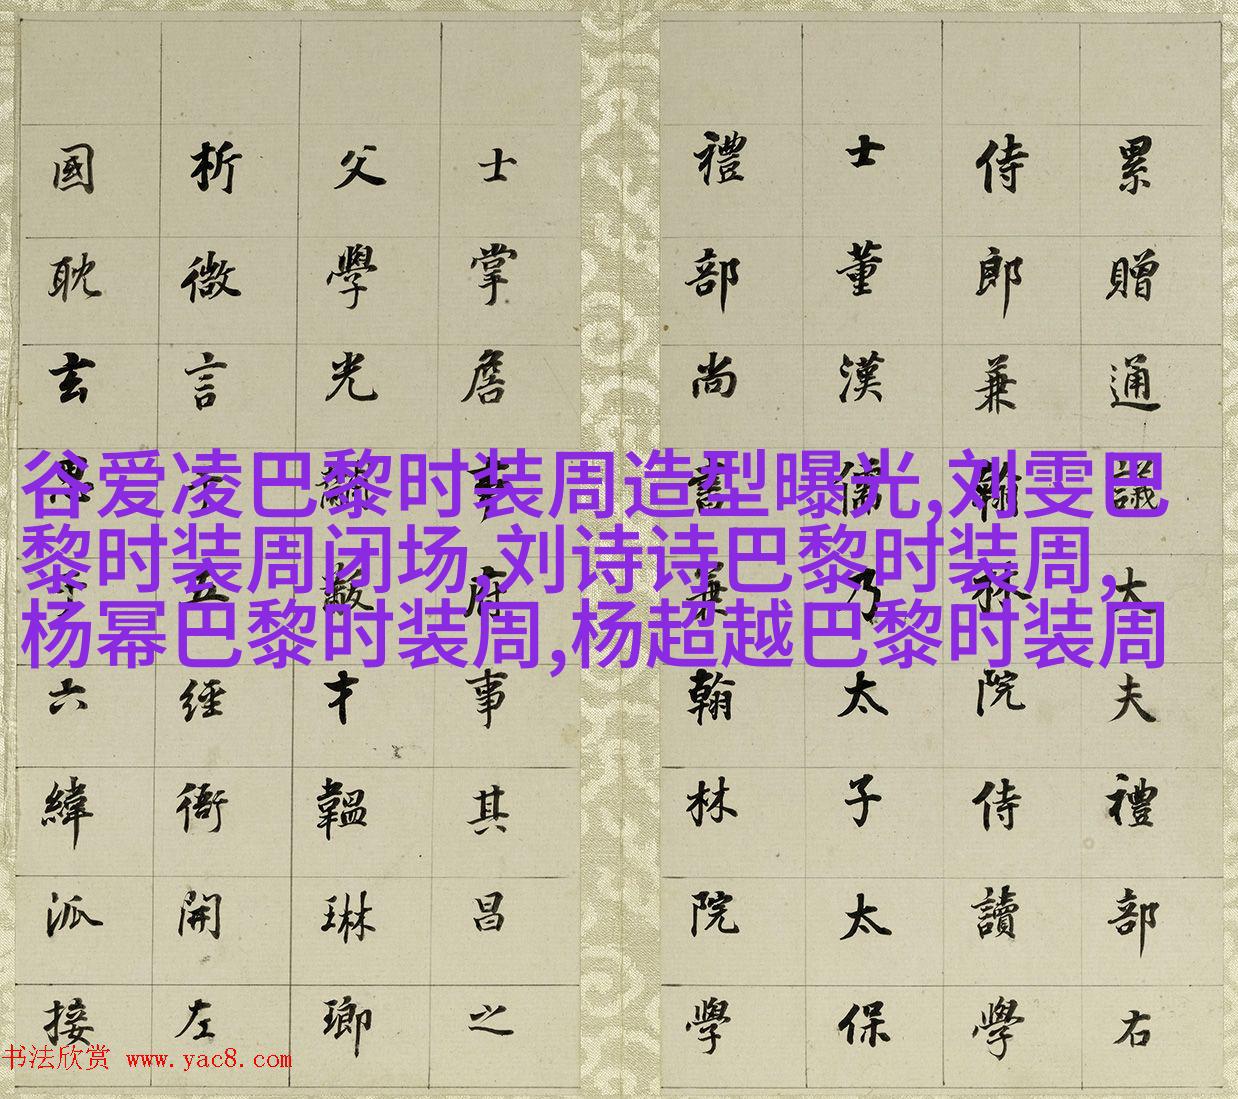 谷爱凌巴黎时装周造型曝光,刘雯巴
黎时装周闭场,刘诗诗巴黎时装周,
杨幂巴黎时装周,杨超越巴黎时装周
累贈通議大夫禮部右
侍郎兼翰林院侍讀學
士董漢儒乃太子太保
禮部尚書兼翰林院學
士掌詹事府事其昌之
父學光黼黻才韞琳瑯
析微言于五經衙開左
國耽玄六緯派接
书法欣赏 www.yac8.com